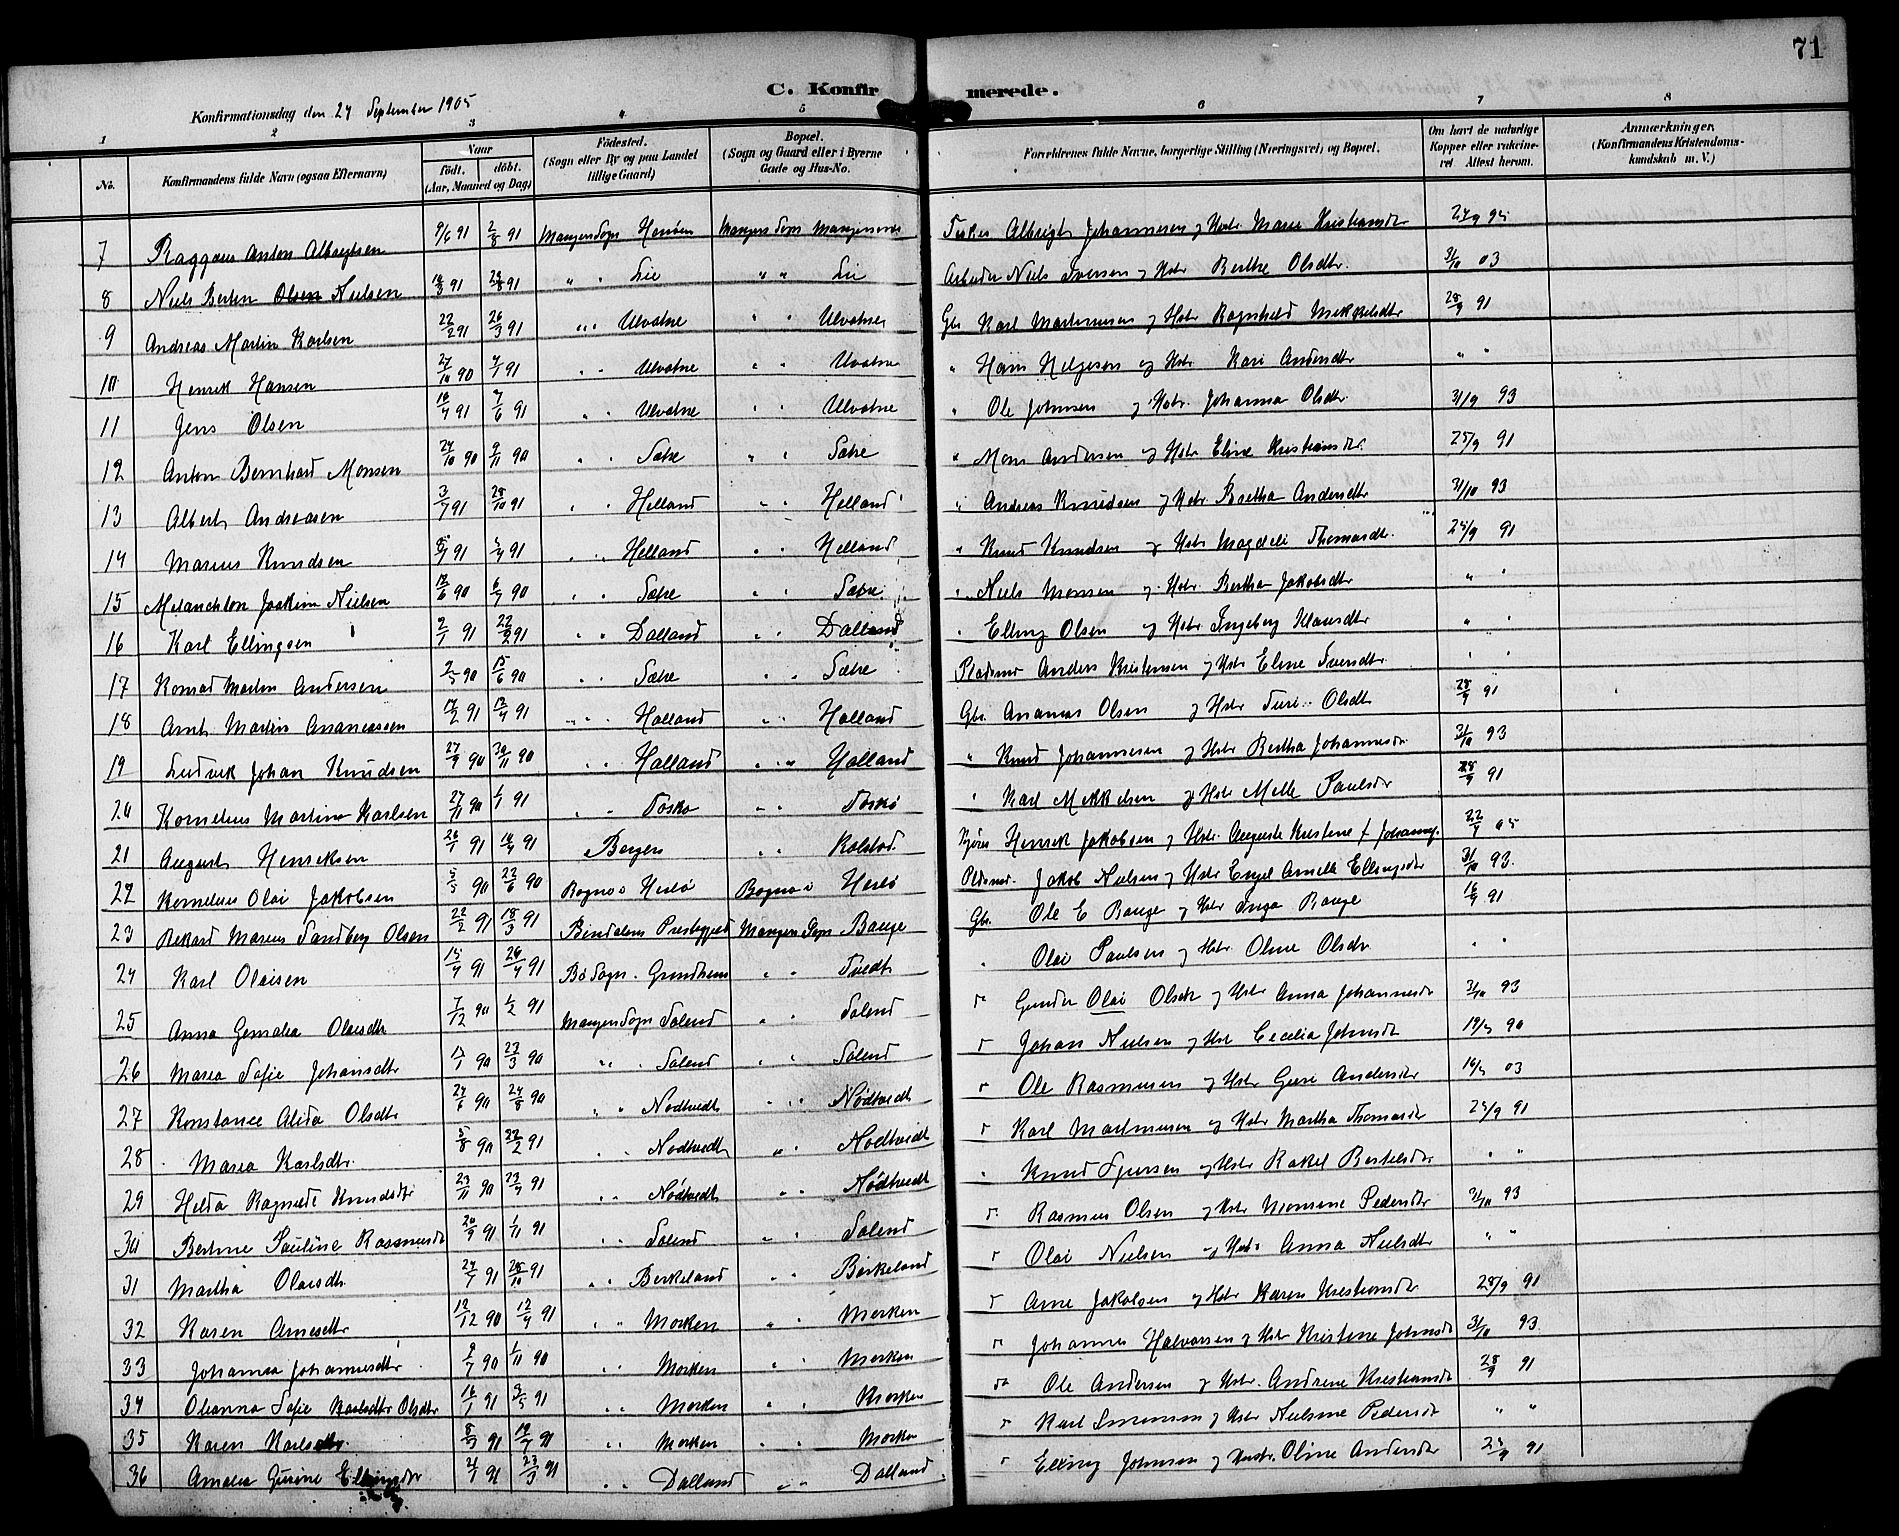 71
C. Konfirmerede.
Konfirmationsdag den 24 September 1905
1 2 3 4 5 6 7 8
No. Konfirmandens fulde Navn (ogsaa Efternavn) Naar født. døbt. (Aar, Maaned og Dag) Fødested. (Sogn eller By og paa Landet tillige Gaard) Bopæl. (Sogn og Gaard eller i Byerne Gade og Hus-No. Forældrenes fulde Navne, borgerlige Stilling (Næringsvei) og Bopæl. Om havt de naturlige Kopper eller vakcineret Attest herom. Anmærkninger. (Konfirmandens Kristendomskundskab m. V.)
7 Anton Albregtsen 9/6 91 2/8 91 Manger Sogn Manger Sogn Fisker Albrigt Johannesen og Hstr Marie Kristiansdtr
8 Niels Berten Olsen Nielsen 91 91 " " Lie " " Lie Arbeider Niels Iversen og Hstr Berthe Olsdtr 31/10 03
9 Andreas Martin Karlsen 22/2 91 26/3 91 " " Ulvatne " " Ulvatne Gbr Karl Martinusen og Hstr Ragnhild Mikkelsdtr 28/9 91
10 Henrik Hansen 27/10 90 4/1 91 " " Ulvatne " " Ulvatne " Hans Helgesen og Hstr Kari Andersdtr " "
11 Jens Olsen 10/4 91 7/6 91 " " Ulvatne " " Ulvatne " Ole Johnsen og Hstr. Johanna Olsdtr. 31/9 93
12 Anton Bernhard Monsen 24/10 90 9/11 90 " " Sætre " " Sætre " Mons Andersen og Hstr Eline Kristiansdtr. 25/9 91
13 Albert Andreasen 3/7 91 28/10 91 " " Helland " " Helland " Andreas Knudsen og Hstr Bertha Andersdtr 31/10 93
14 Marius Knudsen 91 5/4 91 " " Helland " " Helland " Knud Knudsen og Hstr Magdeli Thomasdtr. 25/9 91
15 Melanchton Joakim Nielsen 90 6/7 90 " " Sætre " " Sætre " Niels Monsen og Hstr Bertha Jakobsdtr " "
16 Karl Ellingsen 2/1 91 22/2 91 " " Dalland " " Dalland " Elling Olsen og Hstr Ingeborg Hansdtr " "
17 Konrad Martin Andersen 2/5 90 15/6 90 " " Sætre " " Sætre Pladsmd Anders Kristensen og Hstr Eline Svendtr. " "
18 Arnt Martin Ananiassen 91 91 " " Halland " " Halland Gbr. Ananias Olsen og Hstr Turi Olsdtr 28/9 91
19 Ludvik Johan Knudsen 27/9 90 30/11 90 " " Halland " " Halland " Knud Johannesen og Hstr Bertha Johannesdr. 31/10 93
20 Kornelius Martin Karlsen 27/11 90 1/1 91 " " Toskø " " Toskø " Karl Mikkelsen og Hstr Melle Paulsdr 28/9 91
21 August Henriksen 26/1 91 91 Bergen " " Kolstad. Henrik Jakobsen og Hstr. Auguste Kristine f. 05
22 Kornelius Olai Jakobsen 5/5 90 22/6 90 Bognøs Herlø Bognøs Herlø Pldsmd. Jakob Nielsen og Hstr Engel Amelle Ellingsdtr 31/10 93.
23 Rekard Marius Sandberg Olsen 22/2 91 18/3 91 Bindalens Prestegjeld Manger Sogn Bauge Gbr. Ole E Bauge og Hstr Inga Bauge 16/9 91
24 Karl Olaisen 15/4 91 26/4 91 Bø Sogn. Grindheim " " Tvedt " Olai Paulsen og Hstr. Oline Olsdr " "
25 Anna Olaisdtr 7/12 90 1/2 91 Manger Sogn Solend " " Solend do Olai Olsen og Hstr Anna Johannesdr 31/10 93
26 Maria Sofie Johansdtr 90 23/3 90 " " Solend " " Solend " Johan Nielsen og Hstr Cecelia Johnsdtr 90
27 Konstance Alida Olsdtr 24/6 90 24/8 90 " " Nødtvedt " " Nødtvedt " Ole Rasmusen og Hstr Guri Andersdtr 03
28 Maria Karlsdtr. 5/8 90 22/2 91 " " Nødtvedt " " Nødtvedt " Karl Martinusen og Hstr Martha Thomasdtr 25/9 91
29 Helda Knudsdtr 23/11 90 23/4 91 " " Nødtvedt " " Nødtvedt " Knud Sjursen og Hstr Rakel Bertelsdtr " "
30 Bertine Pauline Rasmusdtr 20/9 91 1/11 91 " " Solend " " Solend " Rasmus Olsen og Hstr Monsine Pedersdtr 31/10 93
31 Martha Olaisdtr. 24/7 91 25/10 91 " " Birkeland " " Birkeland " Olai Nielsen og Hstr Anna Nielsdtr " "
32 Karen Arnesdtr 12/12 90 12/4 91 " " Morken " " Morken " Arne Jakobsen og Hstr Karen Kristiansdtr 28/9 91
33 Johanna Johannesdtr 90 1/11 90 " " Morken " " Morken " Johannes Halvorsen og Hstr Kristine Johnsdtr 31/10 93.
34 Oleanna Sofie Karlsdtr Olsdtr 16/1 91 3/5 91 " " Morken " " Morken do Ole Andersen og Hstr. Andrine Kristiansdtr 28/9 91
35 Karen Karlsdtr. 91 91 " " Morken " " Morken " Karl Simonsen og Hstr Nielsine Pedersdtr " "
36 Amalia Gurine Ellingsdtr 91 23/3 91 " " Dalland " " Dalland " Elling Johnsen og Hustr. Oline Andersdtr 91